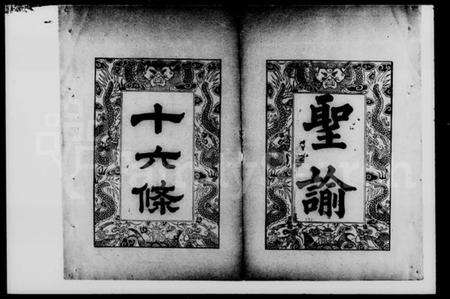 聖諭
十六條